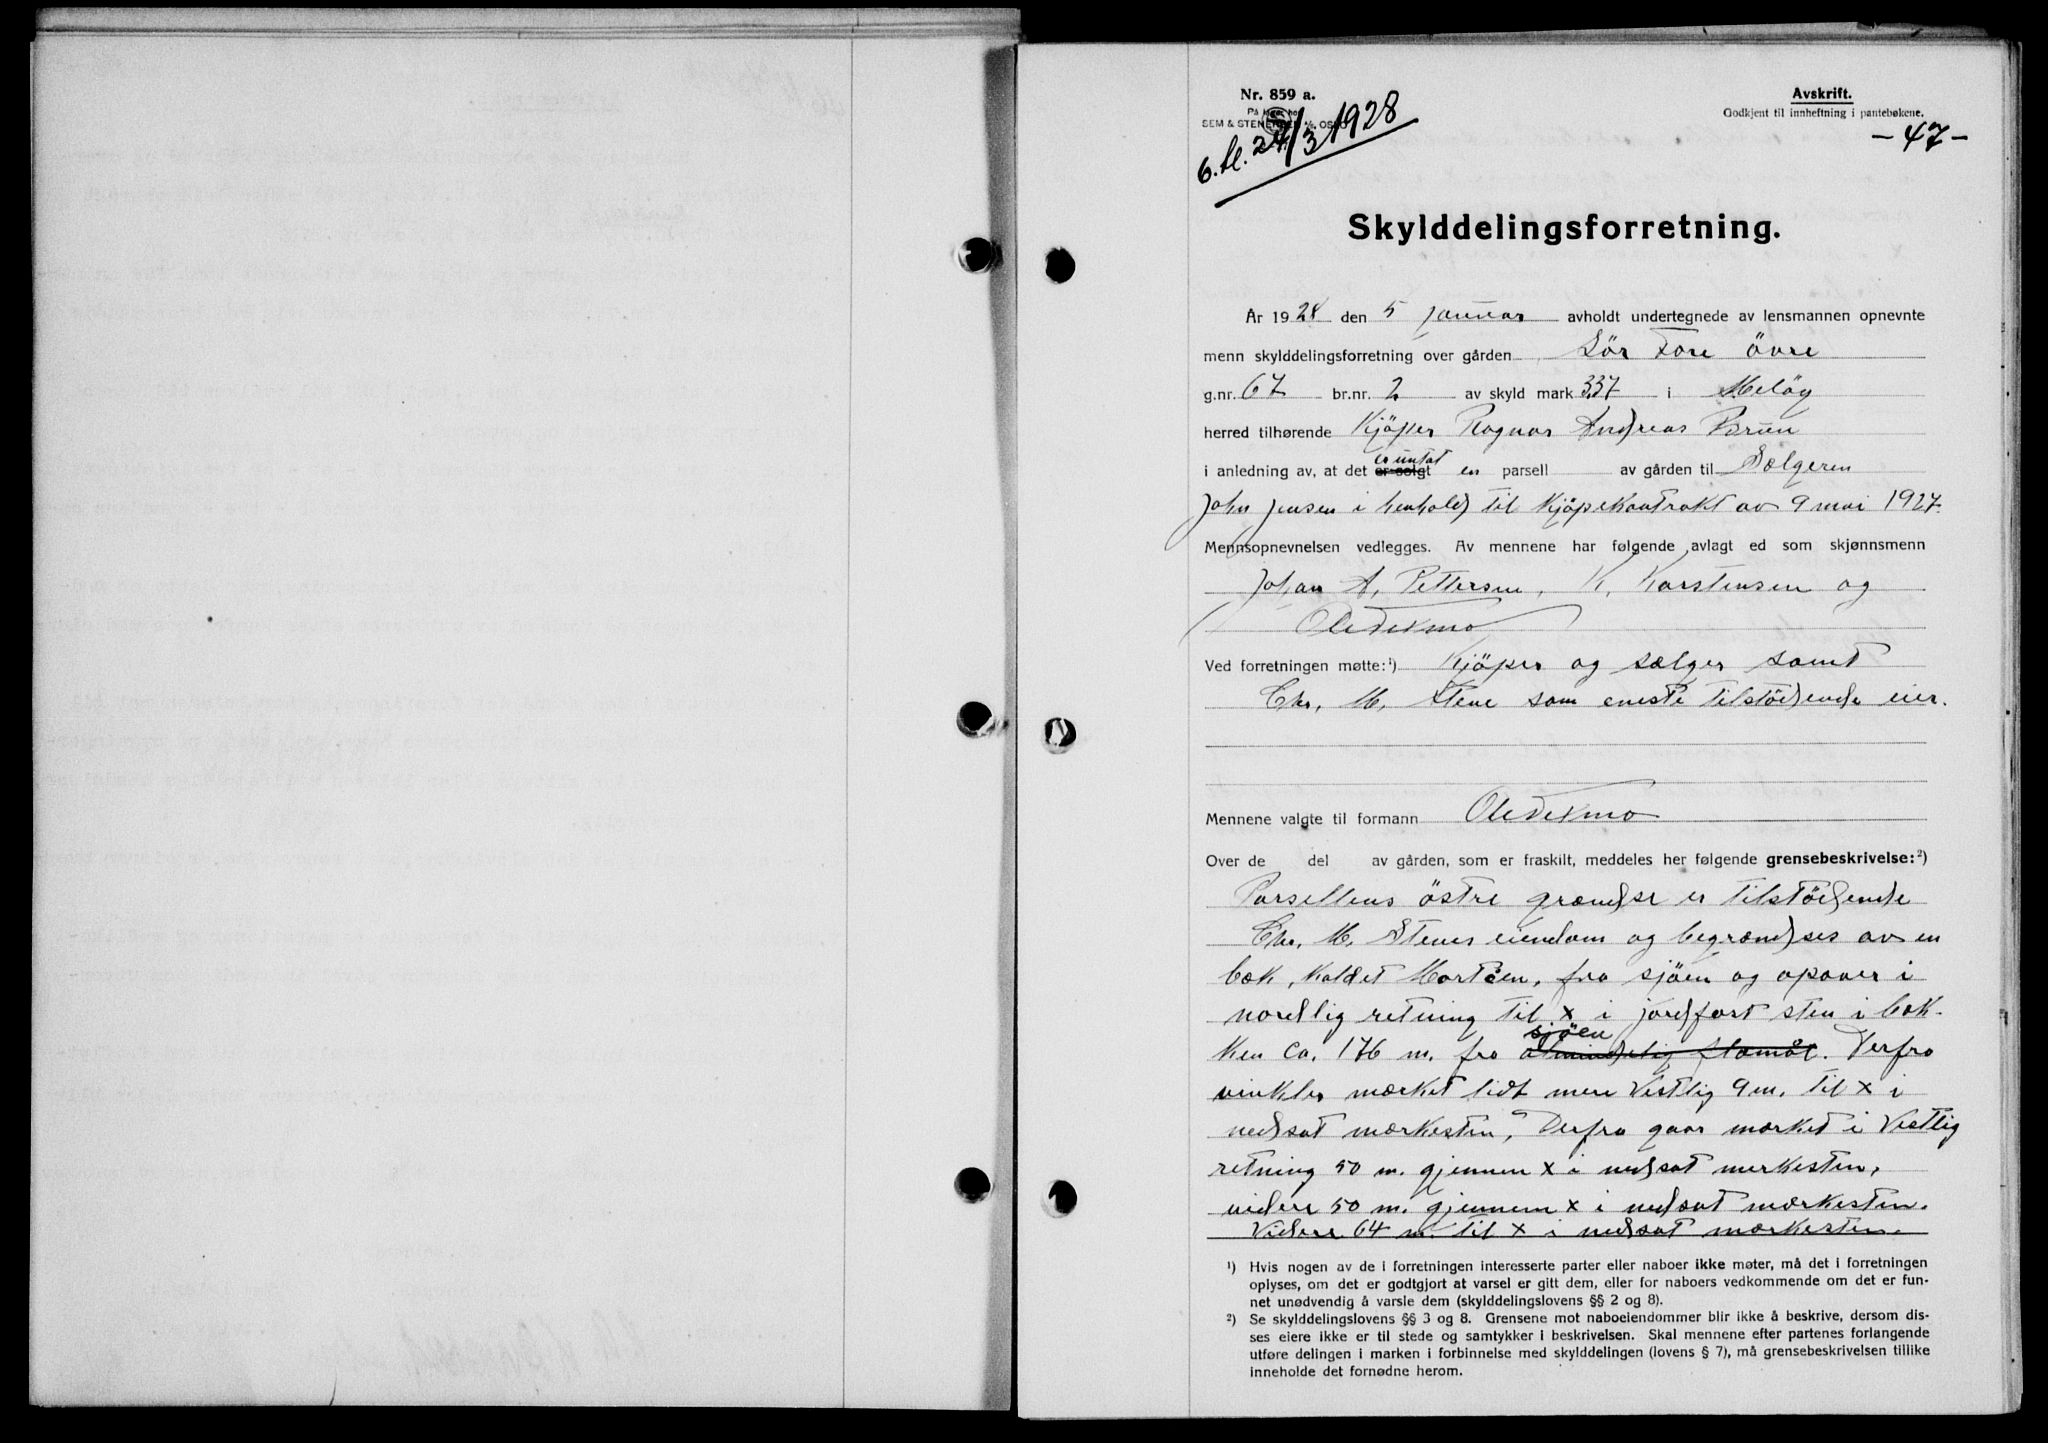 Nr. 859 a.
SEM & STENERSEN A/S, OSLO
6. bl. 24/3 1928
Avskrift.
Godkjent til innheftning i pantebøkene.
- 47 -
Skylddelingsforretning.
År 1928 den 5 januar avholdt undertegnede av lensmannen opnevnte
menn skylddelingsforretning over gården Sör Fore övre
g.nr. 67 br.nr. 2 av skyld mark 3.37 i Melöy
herred tilhørende Kjöper Ragnar Andreas Bruun
i anledning av, at det er solgt er untat en parsell av gården til Sælgeren
John Jensen i henhold til Kjöpekontrakt av 9 mai 1927.
Mennsopnevnelsen vedlegges. Av mennene har følgende avlagt ed som skjønnsmenn
Johan A. Pettersen, K. Karstensen og
Ole Dexmo
Ved forretningen møtte:¹) Kjöper og sælger samt
Chr. M. Stene som eneste tilstödende eier.
Mennene valgte til formann Ole Dexmo
Over de del av gården, som er fraskilt, meddeles her følgende grensebeskrivelse:²)
Parsellens östre grændse er tilstödende
Chr. M. Stenes eiendom og begrændses av en
bæk, kaldet Morteen, fra sjöen og opover i
nordlig retning til x i jordfast sten i bæk-
ken ca. 176 m. fra almindelig flomål sjöen. Derfra
vinkler mærket lidt mere Vestlig 9 m. til x i
nedsat mærkesten, Derfra gaar mærket i Vestlig
retning 50 m. gjennem x i nedsat merkesten,
videre 50 m. gjennem x i nedsat mærkesten.
Videre 64 m. til x i nedsat mærkesten.
¹) Hvis nogen av de i forretningen interesserte parter eller naboer ikke møter, må det i forretningen
oplyses, om det er godtgjort at varsel er gitt dem, eller for naboers vedkommende om det er fun-
net unødvendig å varsle dem (skylddelingslovens §§ 2 og 8).
²) Se skylddelingslovens §§ 3 og 8. Grensene mot naboeiendommer blir ikke å beskrive, dersom dis-
ses eiere ikke er til stede og samtykker i beskrivelsen. Skal mennene efter partenes forlangende
utføre delingen i marken i forbinnelse med skylddelingen (lovens § 7), må grensebeskrivelsen tillike
inneholde det fornødne herom.